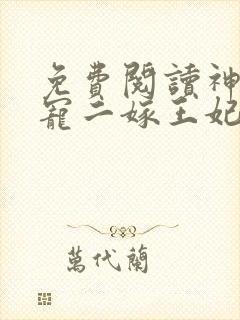 免費閱讀神
寵二嫁王妃
萬代蘭